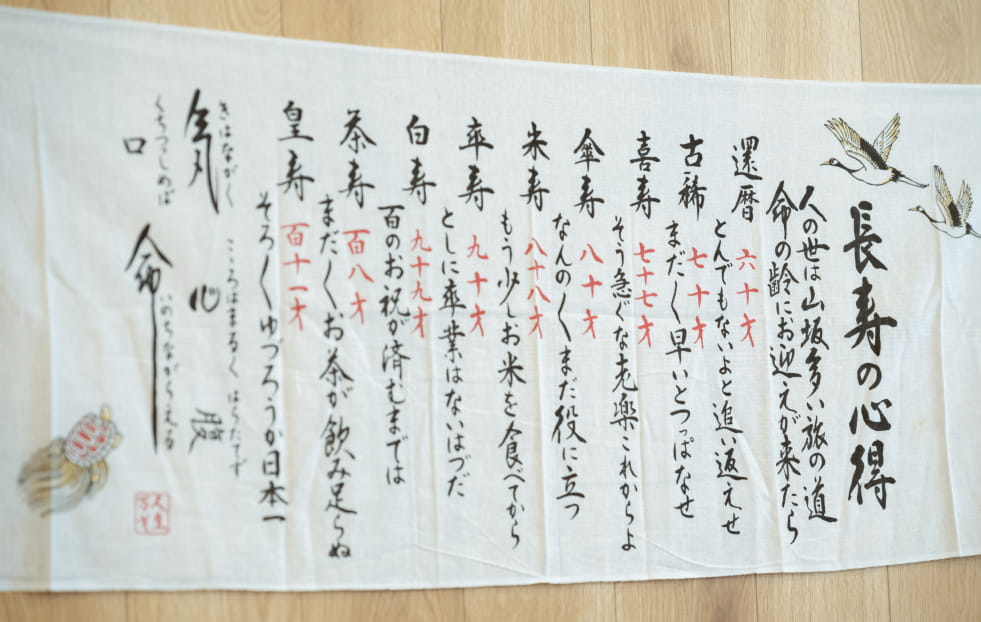 長寿の心得
人の世は山坂多い旅の道
命の齢にお迎えが来たら
還暦 六十才
とんでもないよと追い返えせ
古稀 七十才
まだ〳〵早いとつっぱなせ
喜寿 七十七才
そう急ぐな老楽これからよ
傘寿 八十才
なんの〳〵まだ役に立つ
米寿 八十八才
もう少しお米を食べてから
卒寿 九十才
としに卒業はないはづだ
白寿 九十九才
百のお祝が済むまでは
茶寿 百八才
まだ〳〵お茶が飲み足らぬ
皇寿 百十一才
そろ〳〵ゆづろうか日本一
きはながく
気
こころはまるく
心
はらたてず
腹
くちつつしめば
口
いのちながらえる
命